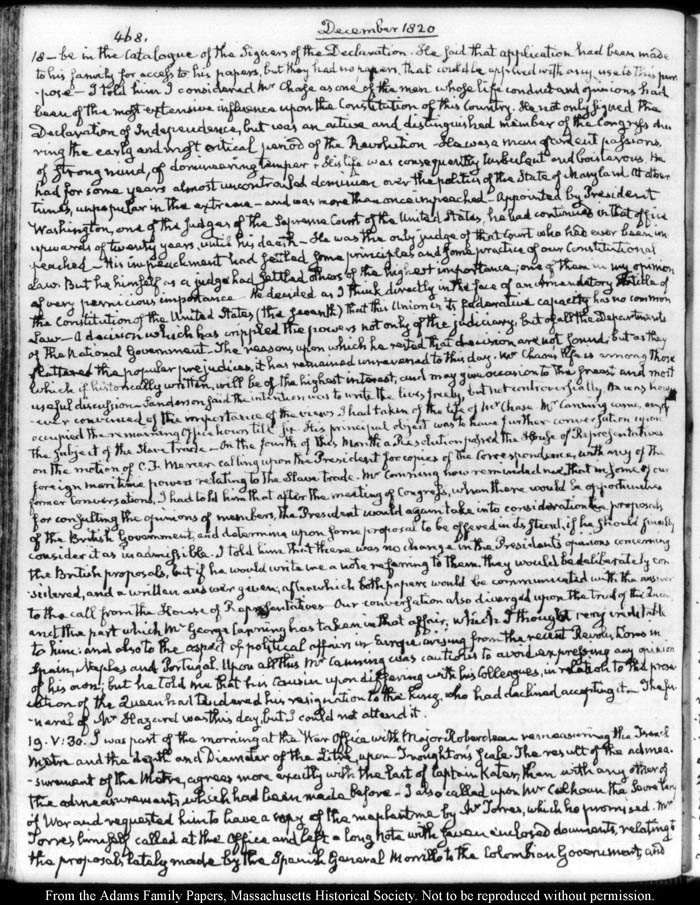 468.
December 1820
18 — be in the Catalogue of the Signers of the Declaration. He said that application had been made
to his family for access to his papers, but they had no papers, that could be applied with any use to this pur-
pose — I told him I considered Mr Chase as one of the men whose life conduct and opinions had
been of the most extensive influence upon the Constitution of this Country. He not only signed the
Declaration of Independence, but was an active and distinguished member of the Congress du-
ring the early and most critical period of the Revolution. He was a man of ardent passions,
of strong mind, of domineering temper. His life was consequently turbulent and boisterous. He
had for some years almost uncontrouled dominion over the politics of the State of Maryland. At other
times, unpopular in the extreme — and was more than once impeached. Appointed by President
Washington, one of the Judges of the Supreme Court of the United States, he had continued in that office
upwards of twenty years, until his death — He was the only judge of that Court who had ever been im-
peached — His impeachment had settled some principles and some practice of our Constitutional
Law. But he himself as a judge had settled others of the highest importance; one of them in my opinion
of very pernicious importance — He decided as I think directly in the face of an Amendatory Article of
the Constitution of the United States (the seventh) that this Union in its federative capacity has no common
Law — A decision which has crippled the powers not only of the judiciary, but of all the Departments
of the National Government. The reasons upon which he rested that decision are not sound, but as they
flattered the popular prejudices, it has remained unreversed to this day. Mr Chase's life is among those
which if historically written, will be of the highest interest, and may give occasion to the freest and most
useful discussion — Sanderson said the intention was to write the lives freely, but not controversially. He was how-
-ever convinced of the importance of the views I had taken of the life of Mr Chase. Mr Canning came, and
occupied the remaining Office hours till six. His principal object was to have further conversation upon
the subject of the Slave trade. On the fourth of this Month a Resolution passed the House of Representatives
on the motion of C. F. Mercer calling upon the President for copies of the Correspondence, with any of the
foreign maritime powers relating to the Slave trade. Mr Canning now reminded me, that in some of our
former Conversations, I had told him that after the meeting of Congress, when there would be opportunities
for consulting the opinions of members, the President would again take into consideration the proposals
of the British Government, and determine upon some proposal to be offered in its stead, if he should finally
consider it as inadmissible. I told him that there was no change in the President's opinions concerning
the British proposals, but if he would write me a note referring to them, they would be deliberately con-
sidered, and a written answer given; after which both papers would be communicated with the answer
to the call from the House of Representatives. Our conversation also diverged upon the trial of the Queen
and the part which Mr George Canning has taken in that affair, which I thought very creditable
to him: and also to the aspect of political affairs in Europe arising from the recent Revolutions in
Spain, Naples and Portugal. Upon all this Mr Canning was cautious to avoid expressing any opinion
of his own; but he told me that his Cousin upon differing with his Colleagues, in relation to the prose-
cution of the Queen had tendered his resignation to the king, who had declined accepting it. — The fu-
neral of Mr Hazard was this day, but I could not attend it.
19. V:30. I was part of the morning at the War Office with Major Roberdeau remeasuring the French
Metre and the depth and Diameter of the Litre, upon Troughton's Scale. The result of the admea-
-surement of the Metre, agrees more exactly with the last of Captain Kater, than with any other of
the admeasurements, which had been made before — I also called upon Mr Calhoun the Secretary
of War and requested him to have a copy of the map lent me by Mr Torres, which he promised. Mr
Torres himself called at the Office and left a long Note with seven enclosed documents, relating to
the proposals, lately made by the Spanish General Morillo to the Colombian Government, and
From the Adams Family Papers, Massachusetts Historical Society. Not to be reproduced without permission.